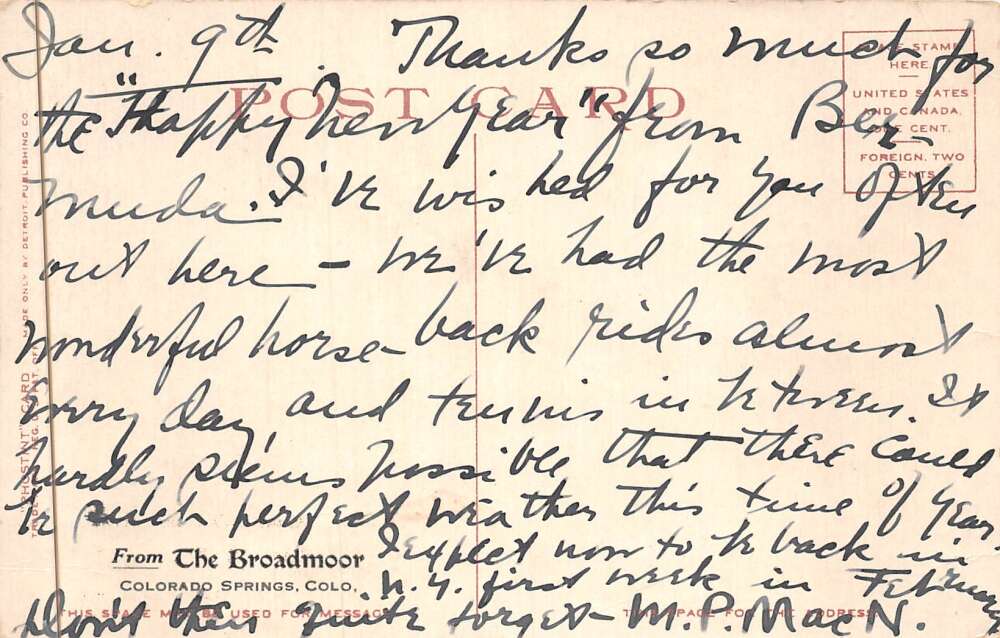 Jan. 9th. Thanks so much for
the "Happy New Year" from Ber-
muda. I've wished for you often
out here - we've had the most
wonderful horse-back rides almost
every day, and tennis in between. It
hardly seems possible that there could
be such perfect weather this time of year.
I expect now to be back in
N.Y. first week in February
Don't then quite forget - M.P. MacN.
POST CARD
PLACE STAMP
HERE.
UNITED STATES
AND CANADA,
ONE CENT.
FOREIGN, TWO
CENTS.
"PHOSTINT" CARD MADE ONLY BY DETROIT PUBLISHING CO.
REG. U.S. PAT. OFF.
From The Broadmoor
COLORADO SPRINGS, COLO.,
THIS SPACE MAY BE USED FOR MESSAGE
THIS SPACE FOR THE ADDRESS